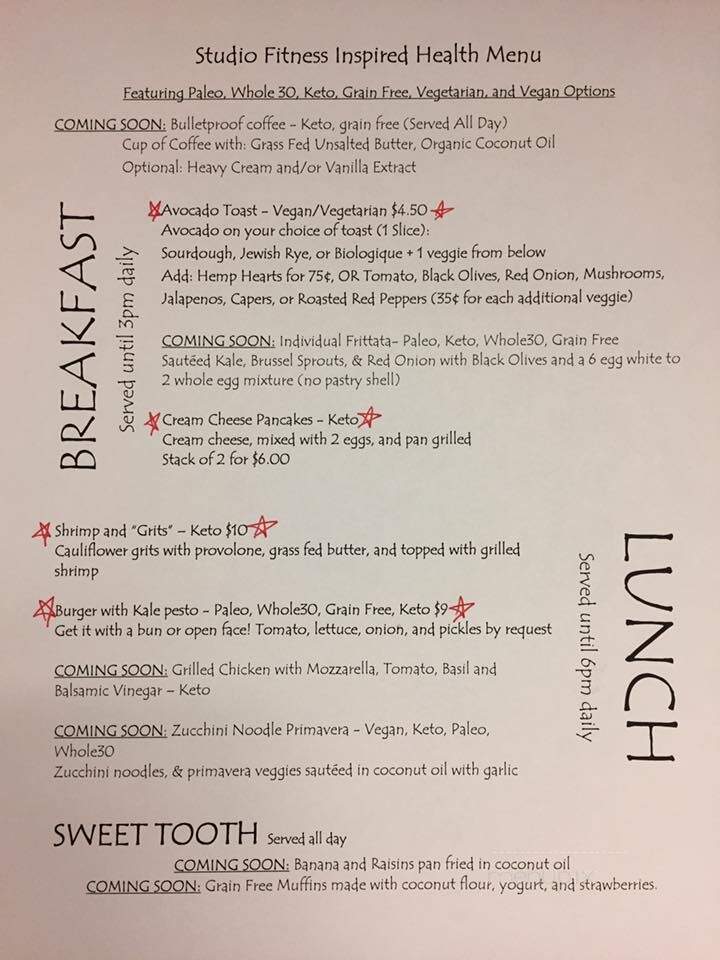 Studio Fitness Inspired Health Menu
Featuring Paleo, Whole 30, Keto, Grain Free, Vegetarian, and Vegan Options
COMING SOON: Bulletproof coffee - Keto, grain free (Served All Day)
Cup of Coffee with: Grass Fed Unsalted Butter, Organic Coconut Oil
Optional: Heavy Cream and/or Vanilla Extract
BREAKFAST
Served until 3pm daily
Avocado Toast - Vegan/Vegetarian $4.50
Avocado on your choice of toast (1 Slice):
Sourdough, Jewish Rye, or Biologique + 1 veggie from below
Add: Hemp Hearts for 75¢, OR Tomato, Black Olives, Red Onion, Mushrooms,
Jalapenos, Capers, or Roasted Red Peppers (35¢ for each additional veggie)
COMING SOON: Individual Frittata- Paleo, Keto, Whole30, Grain Free
Sautéed Kale, Brussel Sprouts, & Red Onion with Black Olives and a 6 egg white to
2 whole egg mixture (no pastry shell)
Cream Cheese Pancakes - Keto
Cream cheese, mixed with 2 eggs, and pan grilled
Stack of 2 for $6.00
LUNCH
Served until 6pm daily
Shrimp and "Grits" - Keto $10
Cauliflower grits with provolone, grass fed butter, and topped with grilled
shrimp
Burger with Kale pesto - Paleo, Whole30, Grain Free, Keto $9
Get it with a bun or open face! Tomato, lettuce, onion, and pickles by request
COMING SOON: Grilled Chicken with Mozzarella, Tomato, Basil and
Balsamic Vinegar - Keto
COMING SOON: Zucchini Noodle Primavera - Vegan, Keto, Paleo,
Whole30
Zucchini noodles, & primavera veggies sautéed in coconut oil with garlic
SWEET TOOTH Served all day
COMING SOON: Banana and Raisins pan fried in coconut oil
COMING SOON: Grain Free Muffins made with coconut flour, yogurt, and strawberries.